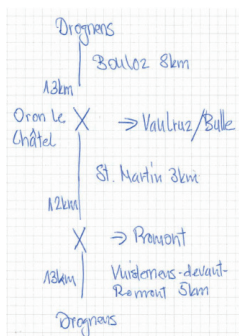 Drognens
Bouloz 8km
13km
Oron le
Châtel
X → Vaulruz/Bulle
St. Martin 3km
12km
X → Romont
13km
Vuisternens-devant-
Romont 5km
Drognens